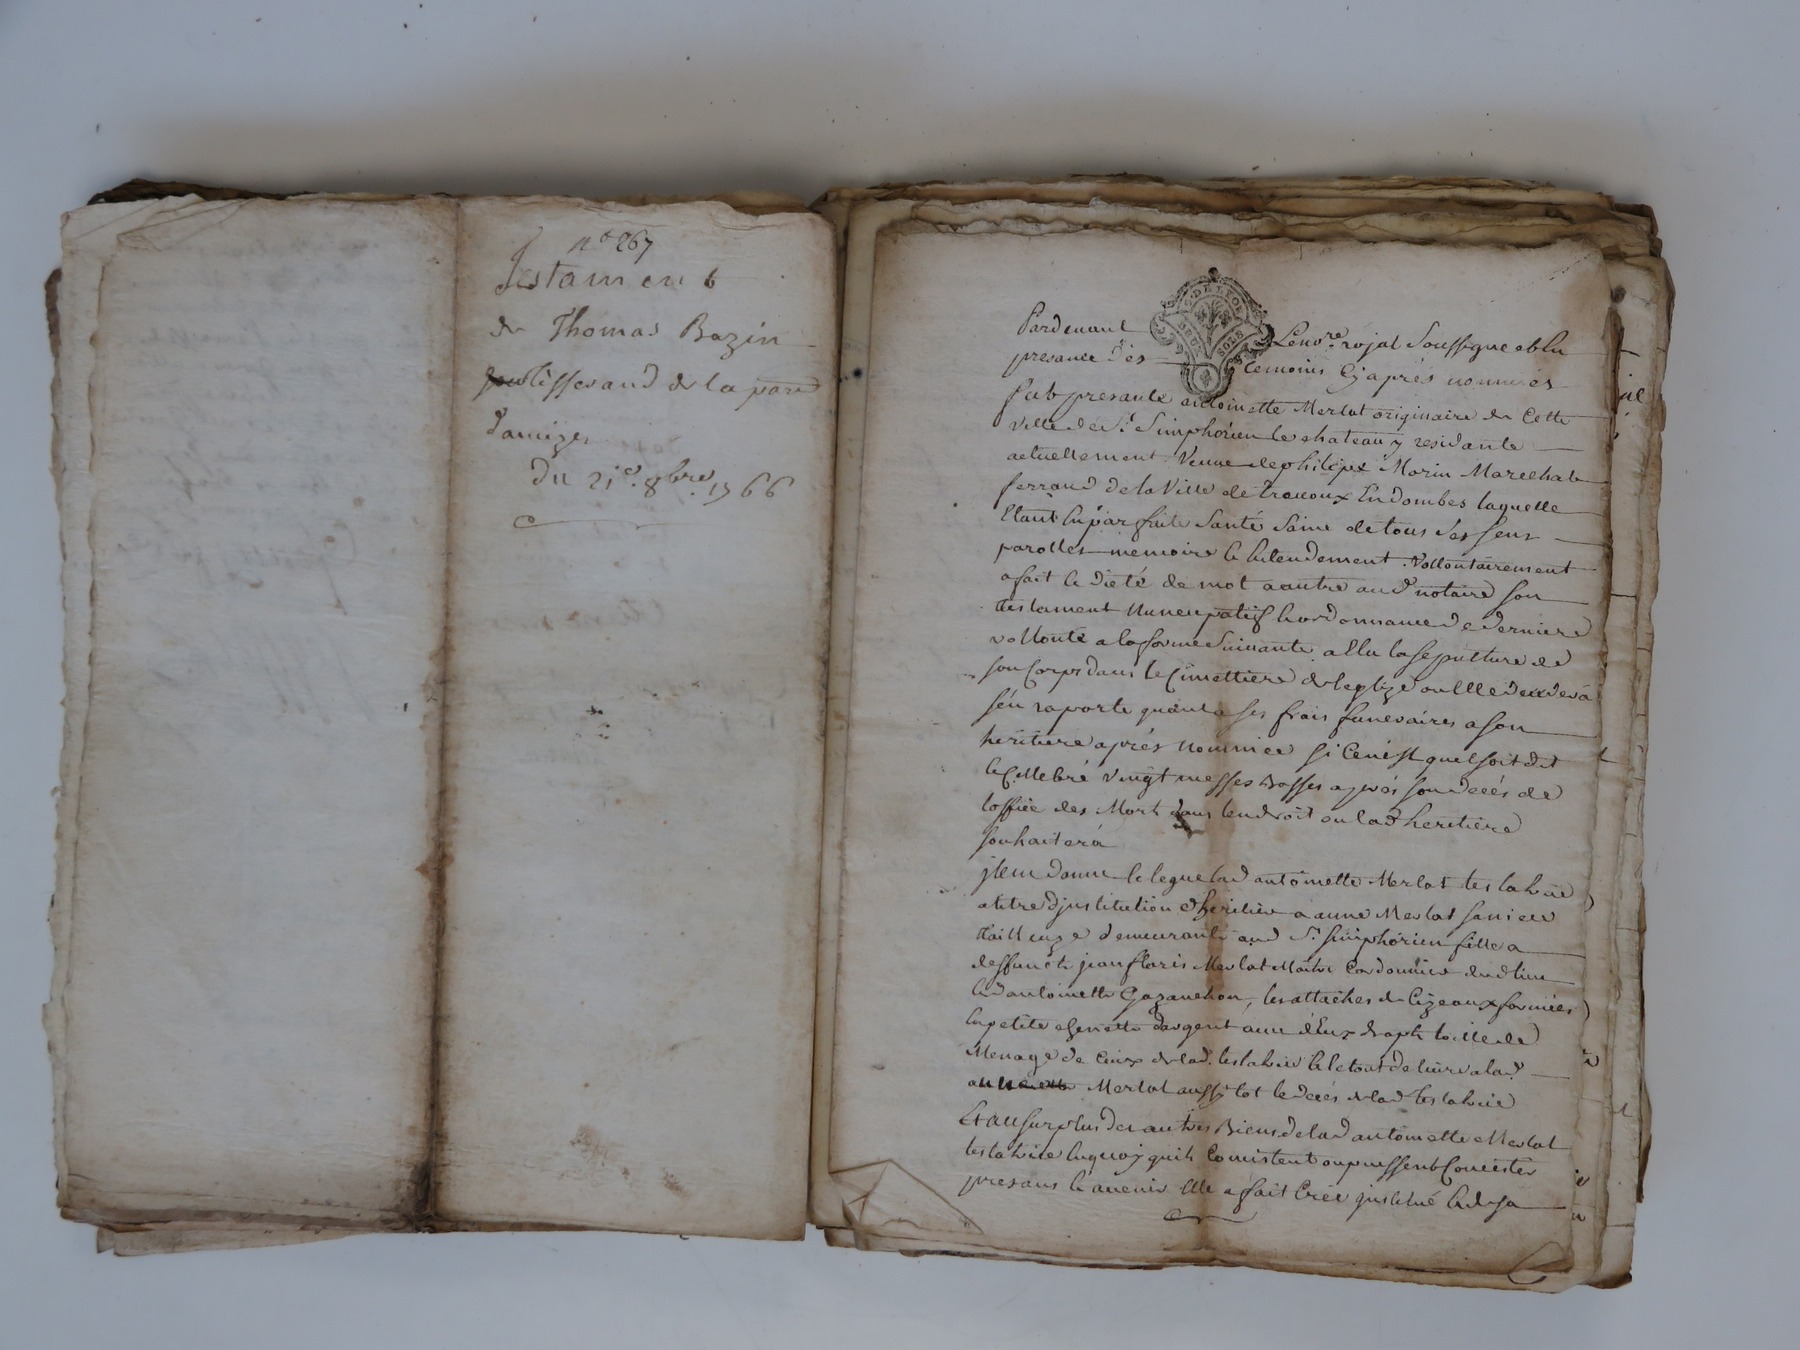 n° 267
Testament
de Thomas Bazin
tisserand de la paroisse
d'amizer
Du 21e. 8bre. 1766
G. DE LYON
DEUX SOLS
Pardevant Le no.re royal Soussigne et En
presance Des temoins Cy aprés nommés
fut presante antoinette Merlat originaire de Cette
ville de St. Simphorien le chateau y residante
actuellement Veuve de philipe Morin Marechal
ferrand de la Ville de trevoux En dombes laquelle
Etant En parfaite Santé Saine de tous Ses Sens
parolles memoire & Entendement. Vollontairement
a fait & Dicté de mot a autre aud. notaire Son
testament Nuncupatif & ordonnance De derniere
vollonté a la forme Suivante a Elu la Sepulture de
Son Corps dans le Cimettiere de leglize ou Elle decedera
Sén raporte quand a Ses frais funeraires a Son
heritiere aprés Nommée Si Cenést quel Soit dit
& Cellebré vingt messes Basses aprés Son decés de
loffice des Mort dans lendroit ou lad. heritiere
Souhaitera
jtem donne & legue lad antoinette Merlat testatrice
a titre djnstitution dheritier a anne Merlat Sa niece
tailleuze demeurante aud St. Simphorien fille a
deffunct jean floris Merlat Maitre Cordonnier dud. lieu
& d'antoinette Gazanchon, les attaches de Cizeaux formées
En petite chenette dargent avec deux draps toille de
Menage de Ceux de lad. testatrice & le tout delivre a lad.
Merlat aussy tot le decés de lad testatrice
Et au Surplus des autres Biens de lad antoinette Merlat
testatrice En quoy quils Consistent ou puissent Consister
presans & avenir Elle a fait Créé jnstitué & de Sa